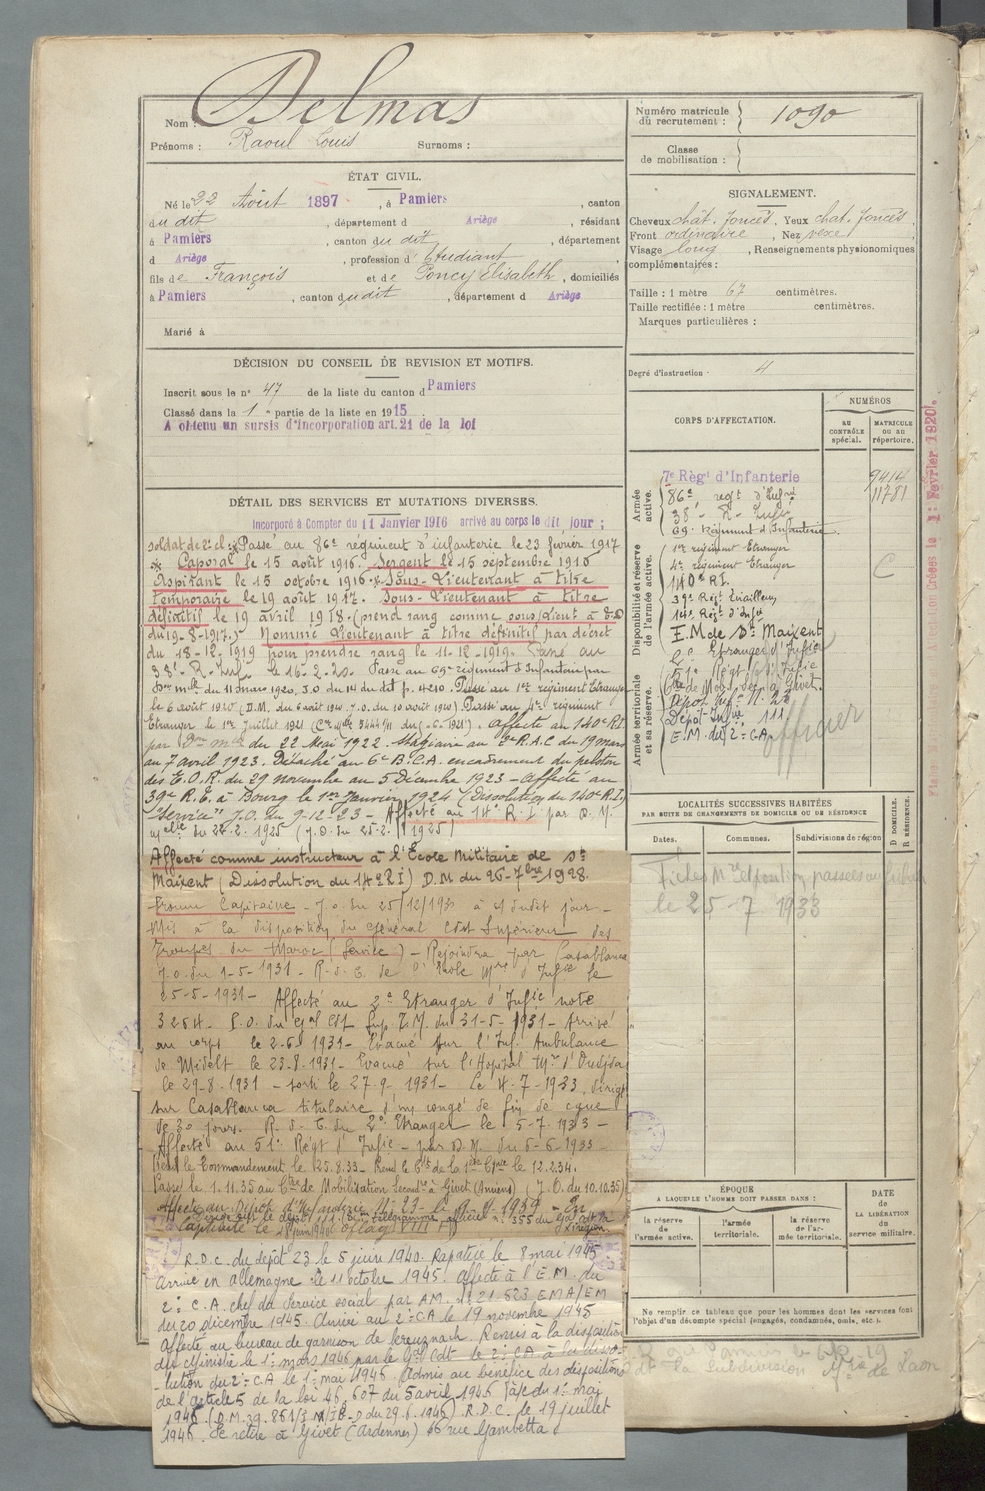 Nom : Delmas
Prénoms : Raoul Louis Surnoms :
ÉTAT CIVIL.
Né le 22 Août 1897, à Pamiers, canton
du dit, département d Ariège, résidant
à Pamiers, canton du dit, département
d Ariège, profession d'Etudiant
fils de François et de Poncy Elisabeth, domiciliés
à Pamiers, canton dudit, département d Ariège
Marié à
DÉCISION DU CONSEIL DE REVISION ET MOTIFS.
Inscrit sous le n° 47 de la liste du canton d Pamiers
Classé dans la 1e partie de la liste en 1915
A obtenu un sursis d'incorporation art. 21 de la loi
DÉTAIL DES SERVICES ET MUTATIONS DIVERSES.
Incorporé à Compter du 11 Janvier 1916 arrivé au corps le dit jour ;
soldat de 2e cl. Passé au 86e régiment d'infanterie le 23 février 1917
Caporal le 15 août 1916. Sergent le 15 septembre 1916
Aspirant le 15 octobre 1916. Sous-Lieutenant à titre
temporaire le 19 août 1917. Sous-Lieutenant à titre
définitif le 19 avril 1918. (prend rang comme sous/Lieut à
du 19-8-1917.) Nommé Lieutenant à titre définitif par décret
du 18-12-1919 pour prendre rang le 11-12-1919. Passé au
38e R. Inf. le 16-2-20. Passé au 69e régiment d'Infanterie par
Don mlle du 11 mars 1920, J.O. du 14 du dit p. 4210. Passé au 1er régiment Etranger
le 6 août 1920 (D.M. du 6 août 1920. J.O. du 10 août 1920) Passé au 4e régiment
Etranger le 1er Juillet 1921 (. Affecté au 140e R.I.
par Don mlle du 22 Mai 1922. Stagiaire au 2e R.A.C. du 19 mars
au 7 avril 1923. Détaché au 6e B.C.A. encadrement du peloton
des E.O.R. du 29 novembre au 5 Décembre 1923 - affecté au
39e R.E. à Bourg le 1er Janvier 1924 (Dissolution du 140e R.I.)
"Service" J.O. du 9-12-23 - Affecté au 14e R.I. par D.M.
du 22-2-1925 (J.O. du 25-2-1925)
Affecté comme instructeur à l'École Militaire de St
Maixent (Dissolution du 14e RI) D.M. du 26-7bre 1928.
Promu Capitaine - J.O. du 25/12/1930 à dudit jour -
Mis à la disposition du Général Cdt Supérieur des
Troupes du Maroc (Service) - Rejoindra par Casablanca
J.O. du 1-5-1931 - R. d. C. de l'École Mre d'Infie le
25-5-1931 - Affecté au 2e Etranger d'Infie note
3254. P.O. du Gal Cdt Sup. T.M. du 31-5-1931 - Arrivé
au corps le 2-6-1931 - Evacué sur l'Inf. Ambulance
de Midelt le 23-8-1931 - Evacué sur l'Hopital Mre d'Oudjda
le 29-8-1931 - sorti le 27-9-1931 - Le 4-7-1933, dirigé
sur Casablanca titulaire d'un congé de fin de cgne
de 30 jours. R. d. C. du 2e Etranger le 5-7-1933 -
Affecté au 51e Régt d'Infie - par D.M. du 6-6-1933
Prend le Commandement le 25.8.33 - Rend le le 12.2.34.
Passé le 1.11.35 au Ctre de Mobilisation Secondre à Givet (J.O. du 10.10.35)
Affecté au Dépôt d'Infanterie N° 23 le 9.9.1939 -
Capturé le juin 1940 Oflag
R.D.C. du dépôt 23 le 5 juin 1940. Rapatrié le 8 mai 1945
Arrivé en Allemagne le 11 octobre 1945. Affecté à l'E.M. du
2e C.A. chef du Service social par A.M. n° 21.623 EMA/EM
du 20 décembre 1945. Arrivé au 2e CA le 19 novembre 1945
Affecté au bureau de garnison de Kreuznach. Remis à la disposition
du Ministre le 1er mars 1946 par le Gal Cdt le 2e CA à la disso-
lution du 2e C.A le 1er mai 1946. Admis au bénéfice des dispositions
de l'article 5 de la loi 46.607 du 5 avril 1946 du 1er mai
1946 (D.M. 39.861/ du 29.6.1946) R.D.C. le 19 juillet
1946. Se retire à Givet (Ardennes) 66 rue Gambetta
Numéro matricule du recrutement : 1090
Classe de mobilisation :
SIGNALEMENT.
Cheveux chât. foncés, Yeux chat. foncés
Front ordinaire, Nez vexe
Visage long, Renseignements physionomiques
complémentaires :
Taille : 1 mètre 67 centimètres.
Taille rectifiée : 1 mètre centimètres.
Marques particulières :
Degré d'instruction : 4
CORPS D'AFFECTATION.
NUMÉROS
AU CONTRÔLE spécial.
MATRICULE OU AU répertoire.
Armée active.
7e Régt d'Infanterie 9414
86e regt d'Infrie 11781
38e R. Infie
69e Régiment d'Infanterie
Disponibilité et réserve de l'armée active.
1er regiment Etranger
4e regiment Etranger C
140e R.I.
39e Régt Tirailleurs
14e Régt d'Infie
E.M. de St Maixent
2e Etranger d'Infie
51e Régt d'Infie
Armée territoriale et sa réserve.
Ctre de Mob. Secre à Givet.
Dépôt Infie N° 23
Dépôt Infie 111
E.M. du 2e C.A.
officier
1er Février 1920.
LOCALITÉS SUCCESSIVES HABITÉES
PAR SUITE DE CHANGEMENTS DE DOMICILE OU DE RÉSIDENCE
D. DOMICILE. R. RÉSIDENCE.
Dates. Communes. Subdivisions de région
Fiches passées au fichier
le 25-7 1933
ÉPOQUE
A LAQUELLE L'HOMME DOIT PASSER DANS :
la réserve de l'armée active.
l'armée territoriale.
la réserve de l'armée territoriale.
DATE de LA LIBÉRATION du service militaire.
Ne remplir ce tableau que pour les hommes dont les services font
l'objet d'un décompte spécial (engagés, condamnés, omis, etc.).
Pamiers le
la subdivision de Laon